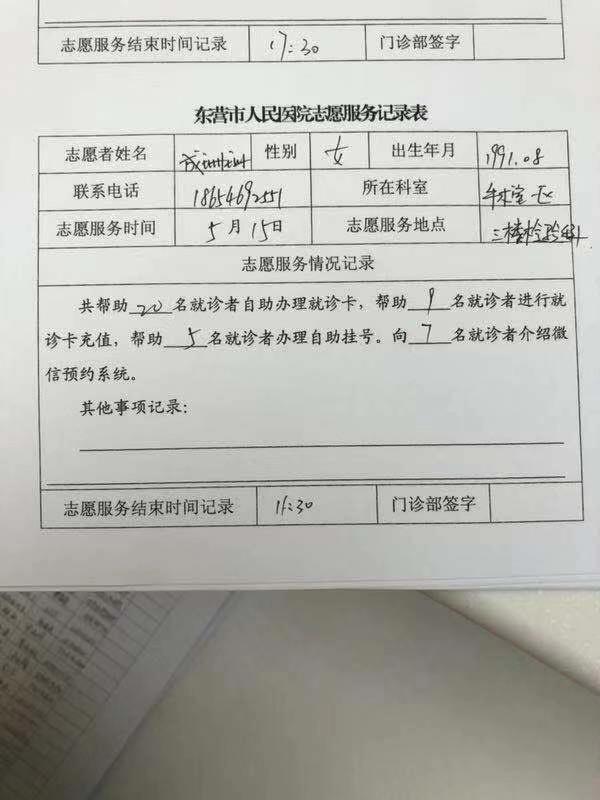 志愿服务结束时间记录 17:30 门诊部签字
东营市人民医院志愿服务记录表
志愿者姓名 性别 女 出生年月 1991.08
联系电话 18654692551 所在科室 手术室一区
志愿服务时间 5月15日 志愿服务地点 三楼检验科
志愿服务情况记录
共帮助20名就诊者自助办理就诊卡，帮助9名就诊者进行就
诊卡充值，帮助5名就诊者办理自助挂号。向7名就诊者介绍微
信预约系统。
其他事项记录：
志愿服务结束时间记录 11:30 门诊部签字